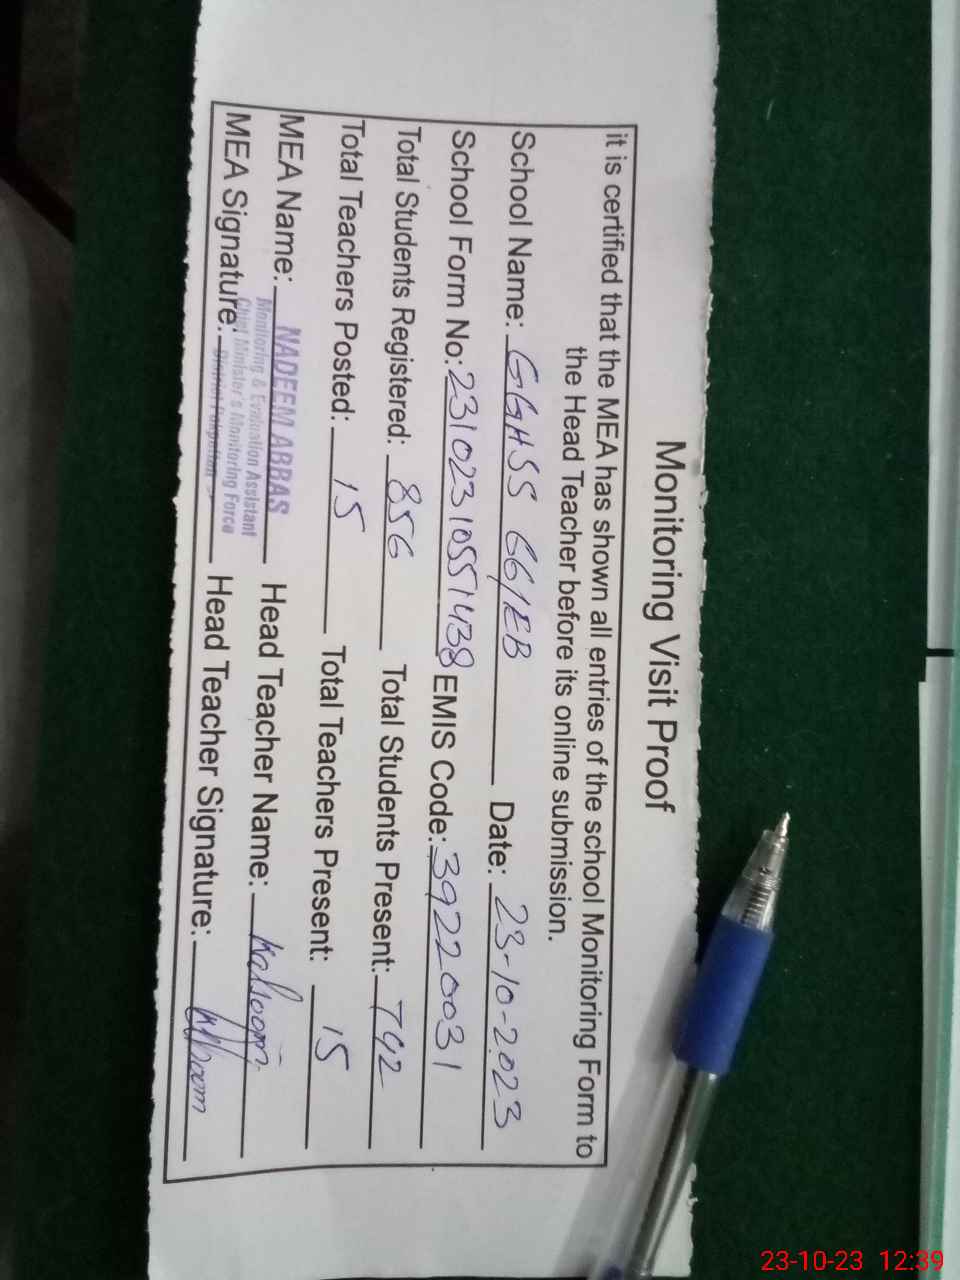 Monitoring Visit Proof
it is certified that the MEA has shown all entries of the school Monitoring Form to
the Head Teacher before its online submission.
School Name: GGHSS 66/EB Date: 23-10-2023
School Form No: 23102310551438 EMIS Code: 39220031
Total Students Registered: 856 Total Students Present: 742
Total Teachers Posted: 15 Total Teachers Present: 15
MEA Name: NADEEM ABBAS Head Teacher Name: Kalsoom
Monitoring & Evaluation Assistant
Chief Minister's Monitoring Force
District Pakpattan
MEA Signature: Head Teacher Signature:
23-10-23 12:39